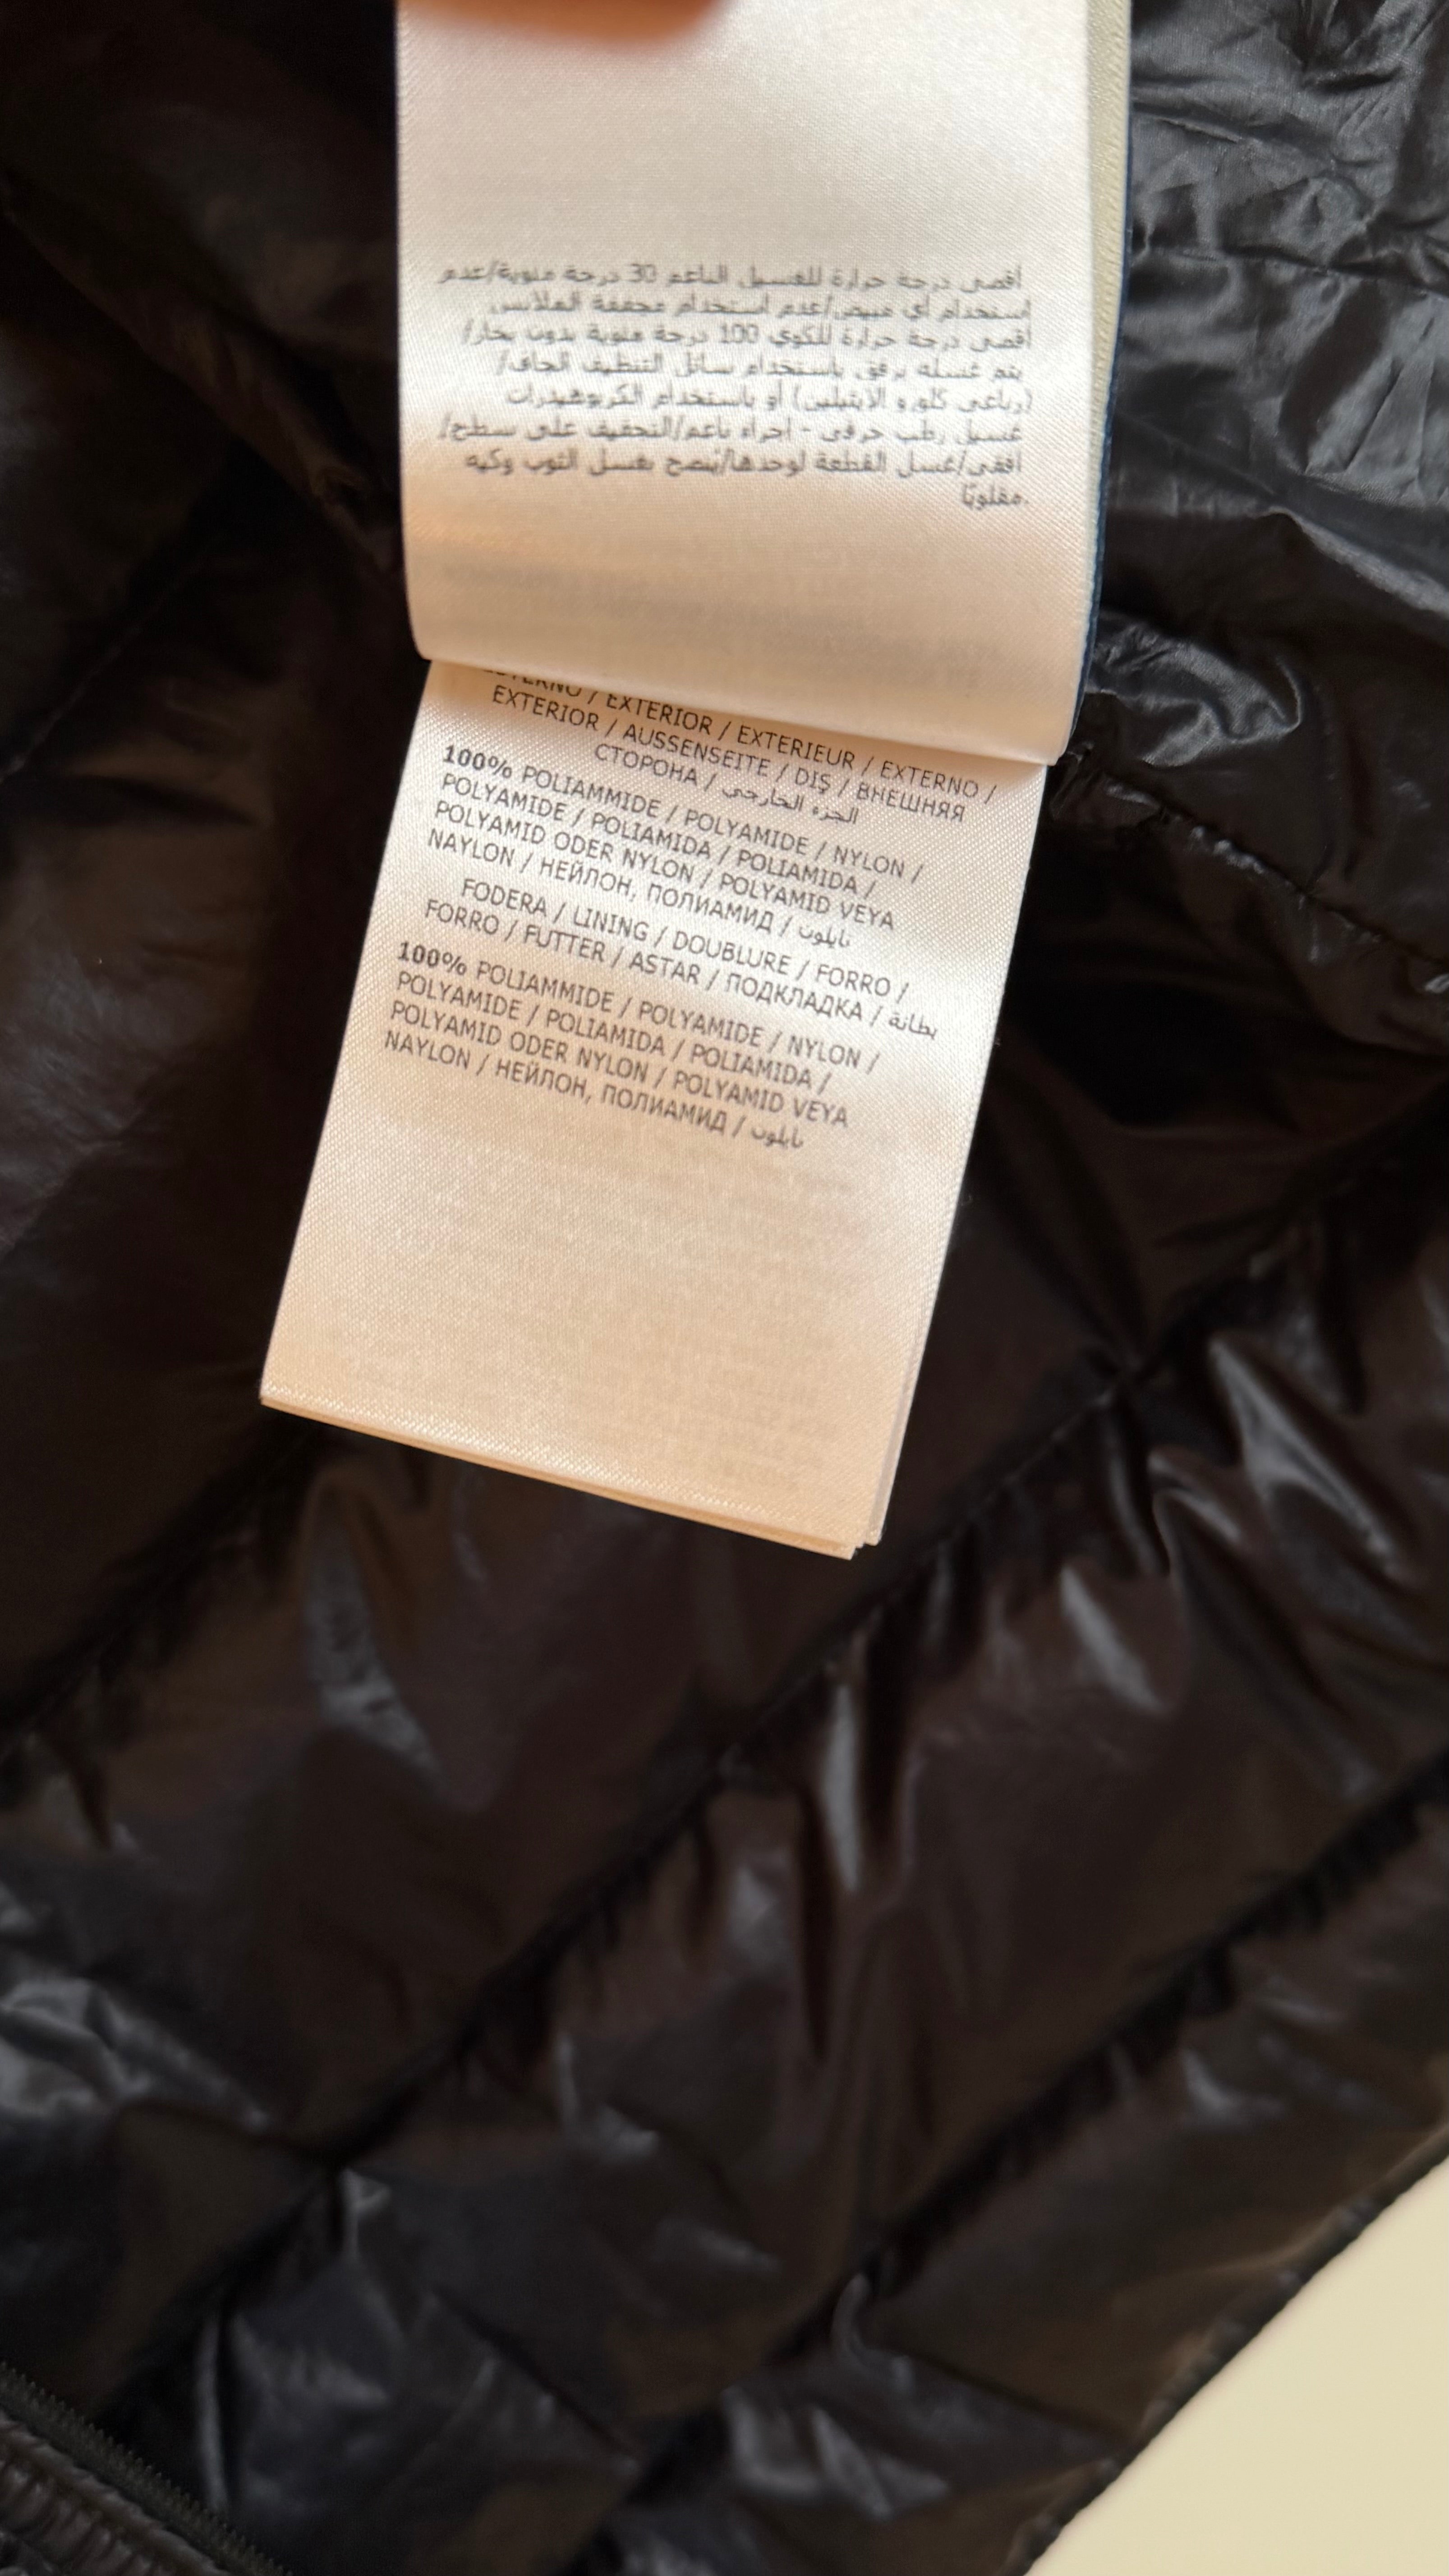 أقصى درجة حرارة للغسيل الناعم 30 درجة مئوية/عدم
استخدام أي مبيض/عدم استخدام مجففة الملابس
أقصى درجة حرارة للكوي 100 درجة مئوية بدون بخار/
يتم غسله برفق باستخدام سائل التنظيف الجاف/
(رباعي كلورو الايثيلين) أو باستخدام الكربوهيدرات
غسيل رطب حرفي - إجراء ناعم/التجفيف على سطح/
أفقي/غسل القطعة لوحدها/يُنصح بغسل الثوب وكيه
مقلوبًا.
/ EXTERIOR / EXTERIEUR / EXTERNO /
EXTERIOR / AUSSENSEITE / DIŞ / ВНЕШНЯЯ
СТОРОНА / الجزء الخارجي
100% POLIAMMIDE / POLYAMIDE / NYLON /
POLYAMIDE / POLIAMIDA / POLIAMIDA /
POLYAMID ODER NYLON / POLYAMID VEYA
NAYLON / НЕЙЛОН, ПОЛИАМИД / نايلون
FODERA / LINING / DOUBLURE / FORRO /
FORRO / FUTTER / ASTAR / ПОДКЛАДКА / بطانة
100% POLIAMMIDE / POLYAMIDE / NYLON /
POLYAMIDE / POLIAMIDA / POLIAMIDA /
POLYAMID ODER NYLON / POLYAMID VEYA
NAYLON / НЕЙЛОН, ПОЛИАМИД / نايلون